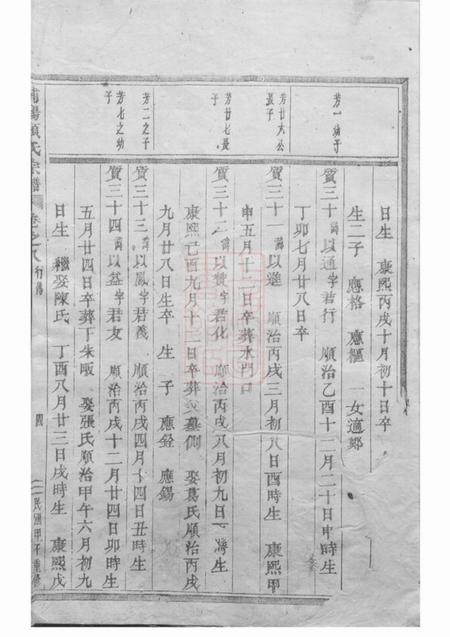 日生 康熙丙戌十月初十日卒
生二子 應格 應樞 一女適鄭
芳一幼子
質三十諱以通字君行 順治乙酉十二月二十日申時生
丁卯七月廿八日卒
芳廿六公長子
質三十一諱以進 順治丙戌三月初八日酉時生 康熙甲
申五月十二日卒葬水門口
芳廿七長子
質三十二諱以贊字君化 順治丙戌八月初九日 時生
康熙己酉九月十二日卒葬父墓側 娶葛氏順治丙戌
九月廿八日生卒 生子 應銓 應錫
芳二之子
質三十三諱以鳳字君義 順治丙戌四月十四日丑時生
芳七之幼子
質三十四諱以益字君友 順治丙戌十二月廿四日卯時生
五月廿四日卒葬丁朱畈 娶張氏順治甲午六月初九
日生 繼娶陳氏 丁酉八月廿三日戌時生 康熙戊
浦陽 氏宗譜 卷之八 行傳 四 民國甲子重修